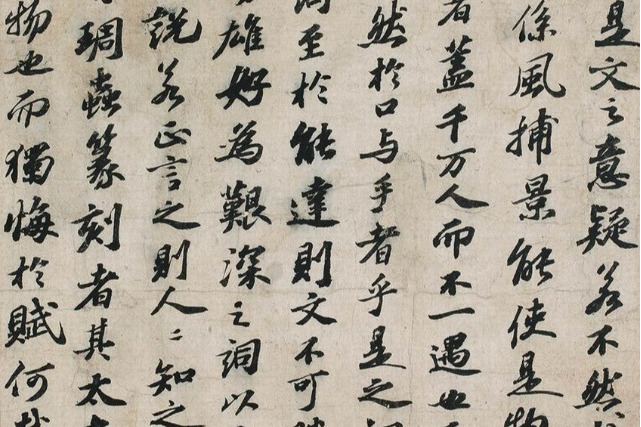 是文之意疑若不然
係風捕景能使是物
者蓋千万人而不一遇也
然於口与手者乎是之
至於能達則文不可
雄好為艱深之詞以
說若正言之則人〻知之
琱蟲篆刻者其太
物也而獨悔於賦何